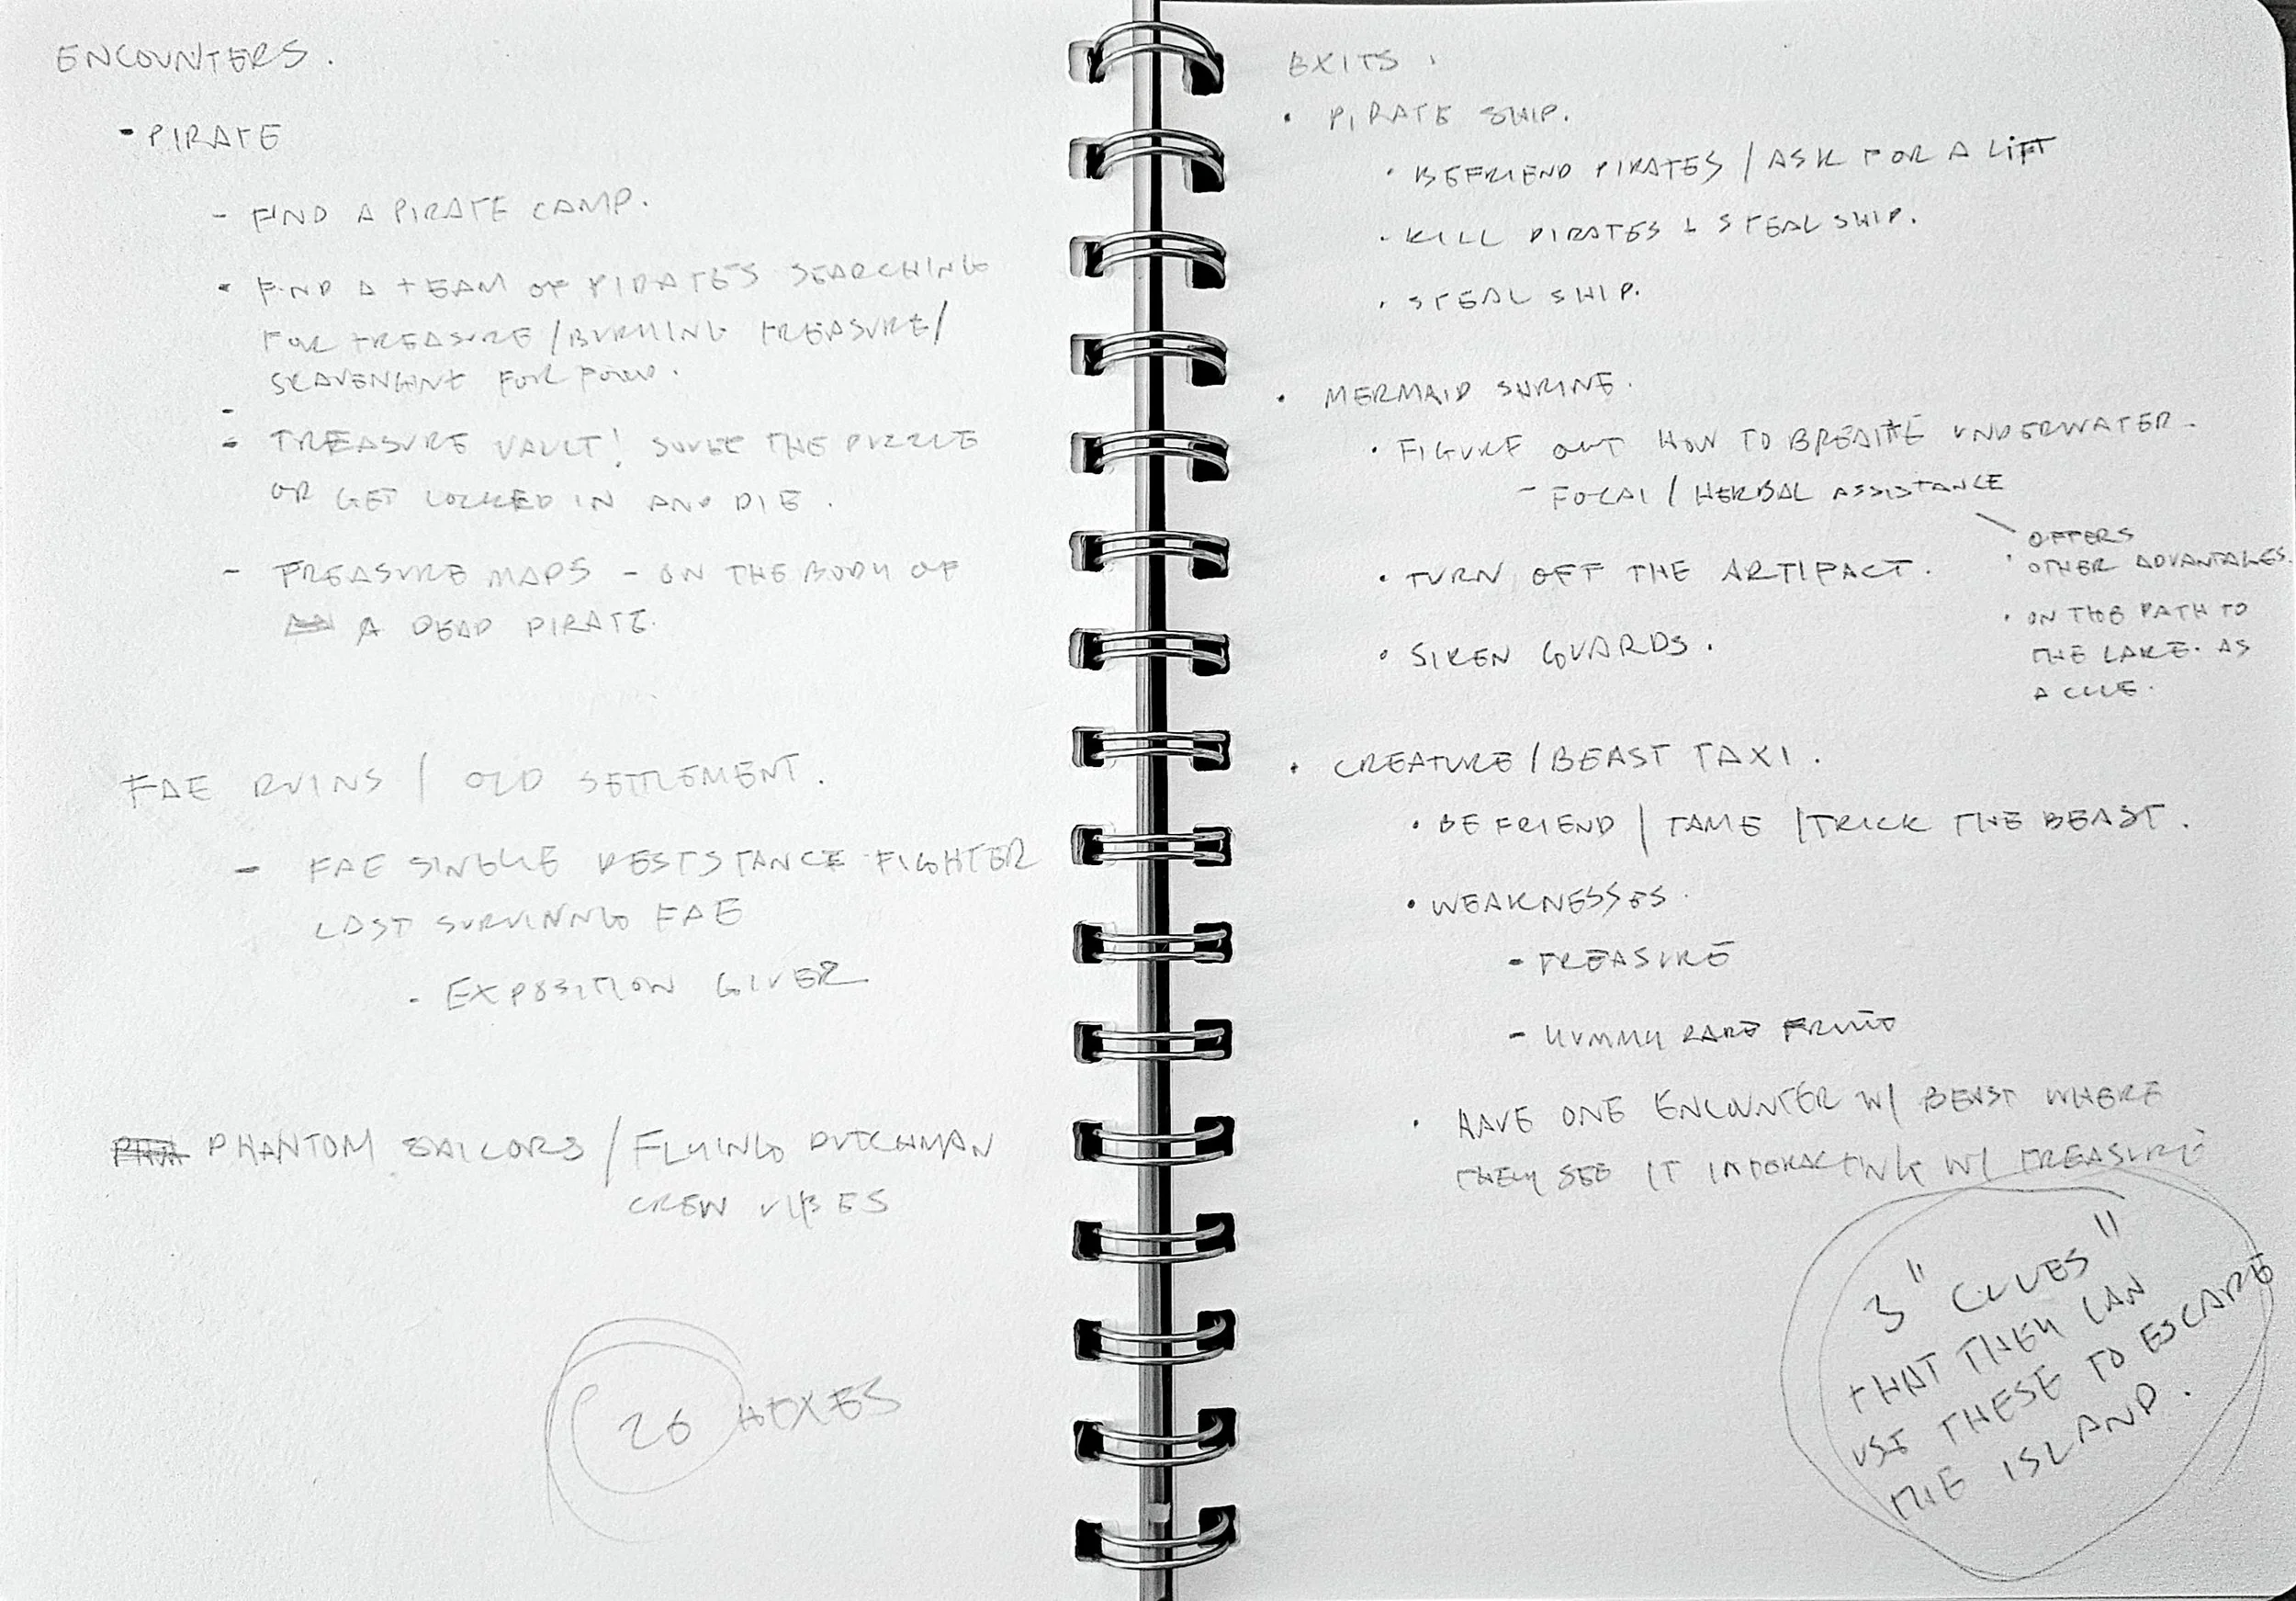 ENCOUNTERS.
- PIRATE
- FIND A PIRATE CAMP.
- FIND A TEAM OF PIRATES SEARCHING
FOR TREASURE / BURYING TREASURE /
SCAVENGING FOR FOOD.
-
- TREASURE VAULT! SOLVE THE PUZZLE
OR GET LOCKED IN AND DIE.
- TREASURE MAPS - ON THE BODY OF
A DEAD PIRATE.
FAE RUINS / OLD SETTLEMENT.
- FAE SINGLE RESISTANCE FIGHTER
LAST SURVIVING FAE
- EXPOSITION GIVER
PHANTOM SAILORS / FLYING DUTCHMAN
CREW VIBES
26 HEXES
EXITS.
• PIRATE SHIP.
• BEFRIEND PIRATES / ASK FOR A LIFT
• KILL PIRATES & STEAL SHIP.
• STEAL SHIP.
• MERMAID SHRINE.
• FIGURE OUT HOW TO BREATHE UNDERWATER.
- / HERBAL ASSISTANCE
OFFERS
• OTHER ADVANTAGES.
• ON THE PATH TO
THE LAKE. AS
A CLUE.
• TURN OFF THE ARTIFACT.
• SIREN GUARDS.
• CREATURE / BEAST TAXI.
• BEFRIEND / TAME / TRICK THE BEAST.
• WEAKNESSES.
- TREASURE
- YUMMY RARE FRUIT
• HAVE ONE ENCOUNTER W/ BEAST WHERE
THEY SEE IT INTERACTING W/ TREASURE
3 "CLUES"
THAT THEY CAN
USE THESE TO ESCAPE
THE ISLAND.